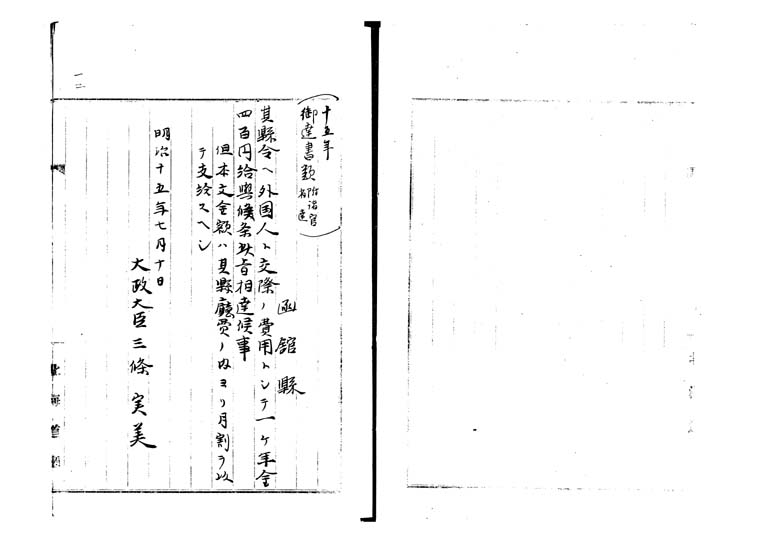 十五年
御達書類 附諸官省達
函館縣
其縣令ヘ外国人ト交際ノ費用トシテ一ケ年金
四百円給與候条此旨相達候事
但本文金額ハ其縣廳費ノ内ヨリ月割ヲ以
テ支給スヘシ
明治十五年七月十日
太政大臣三條実美
一二